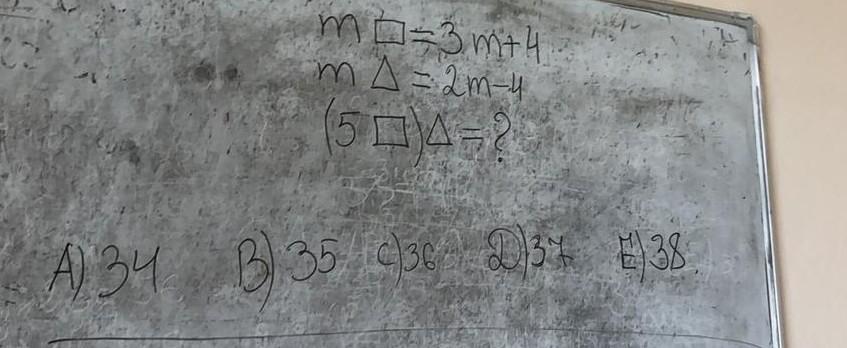 m □ = 3m+4
m △ = 2m-4
(5 □)△ = ?
A) 34 B) 35 C) 36 D) 37 E) 38